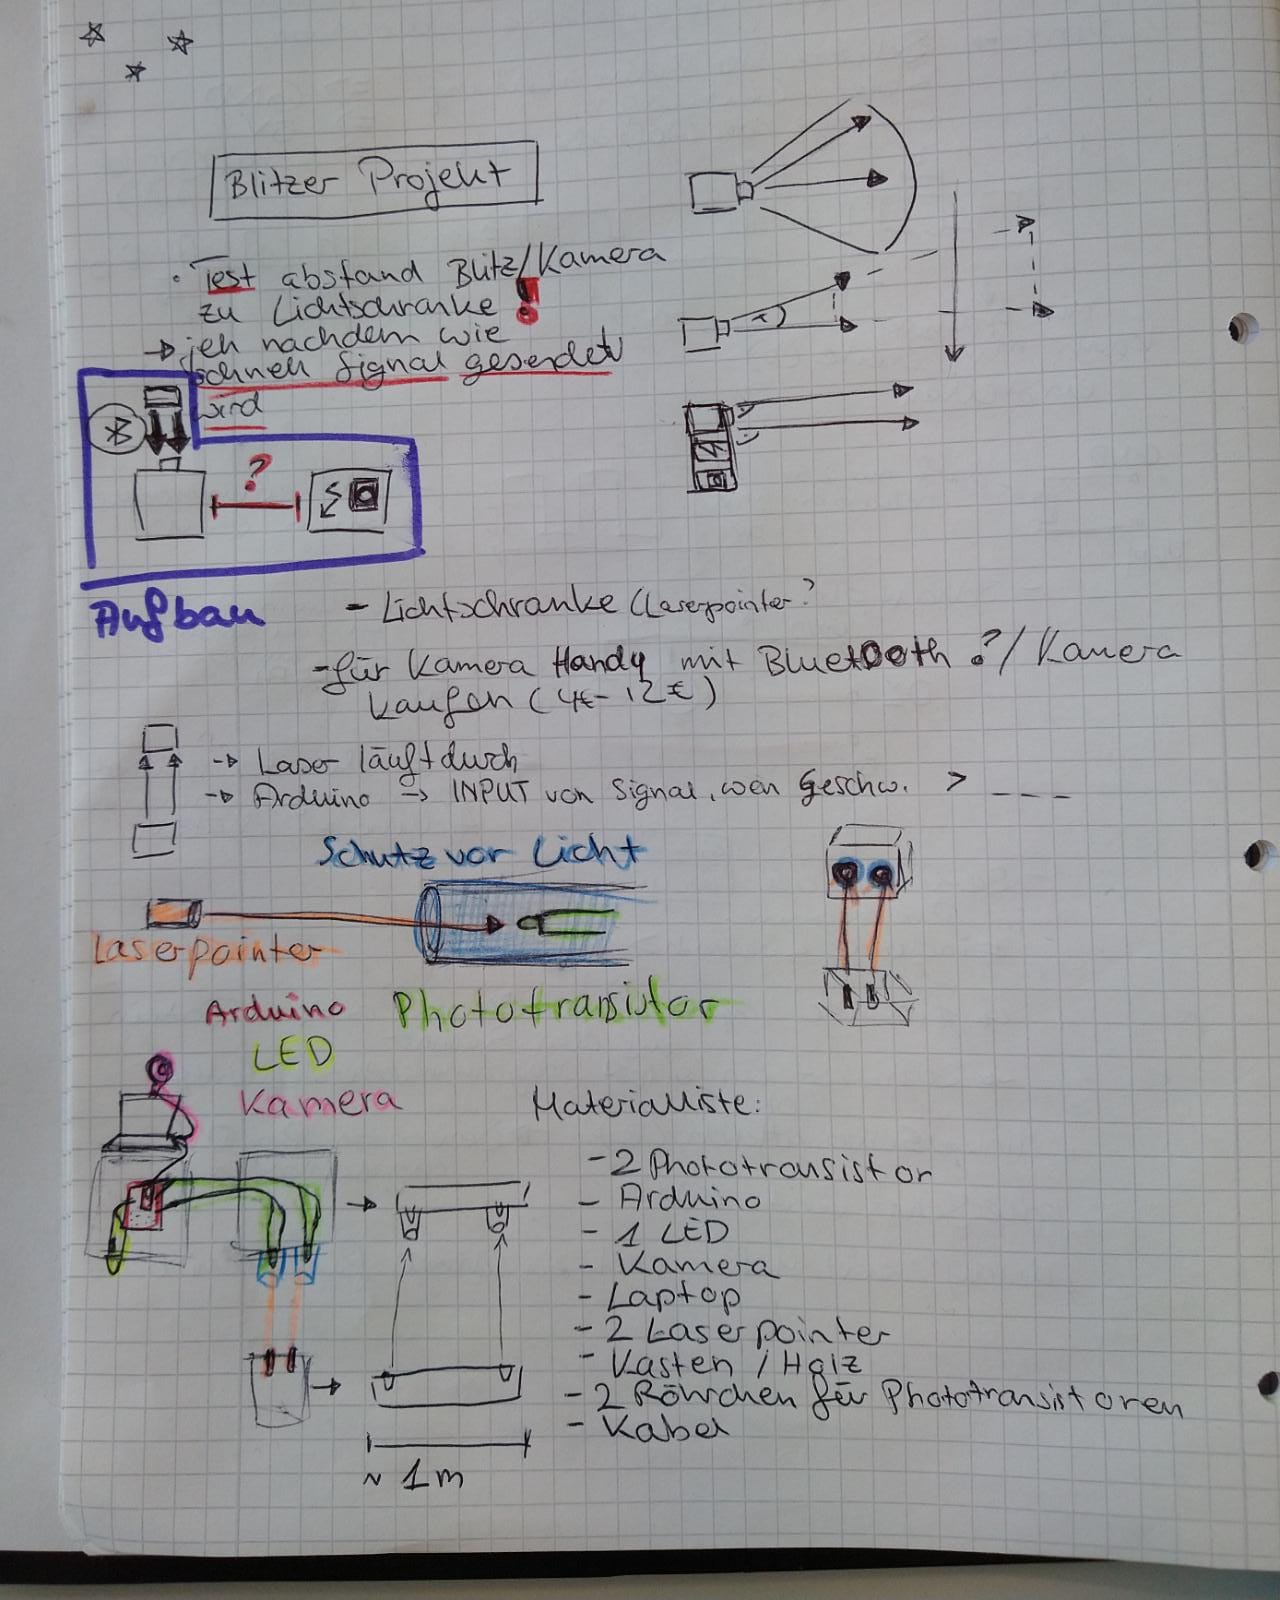 Blitzer Projekt
• Test abstand Blitz/Kamera
zu Lichtschranke!
→ jeh nachdem wie
schnell Signal gesendet
wird
?
Aufbau
- Lichtschranke (Laserpointer?
- für Kamera Handy mit Bluetooth ?/ Kamera
kaufen (4€-12€)
→ Laser läuft durch
→ Arduino → INPUT von Signal, wen Geschw. > _ _ _
Schutz vor Licht
Laserpointer
Arduino
Phototransistor
LED
Kamera
Materialliste:
- 2 Phototransistor
- Arduino
- 1 LED
- Kamera
- Laptop
- 2 Laserpointer
- Kasten / Holz
- 2 Röhrchen für Phototransistoren
- Kabel
~ 1m